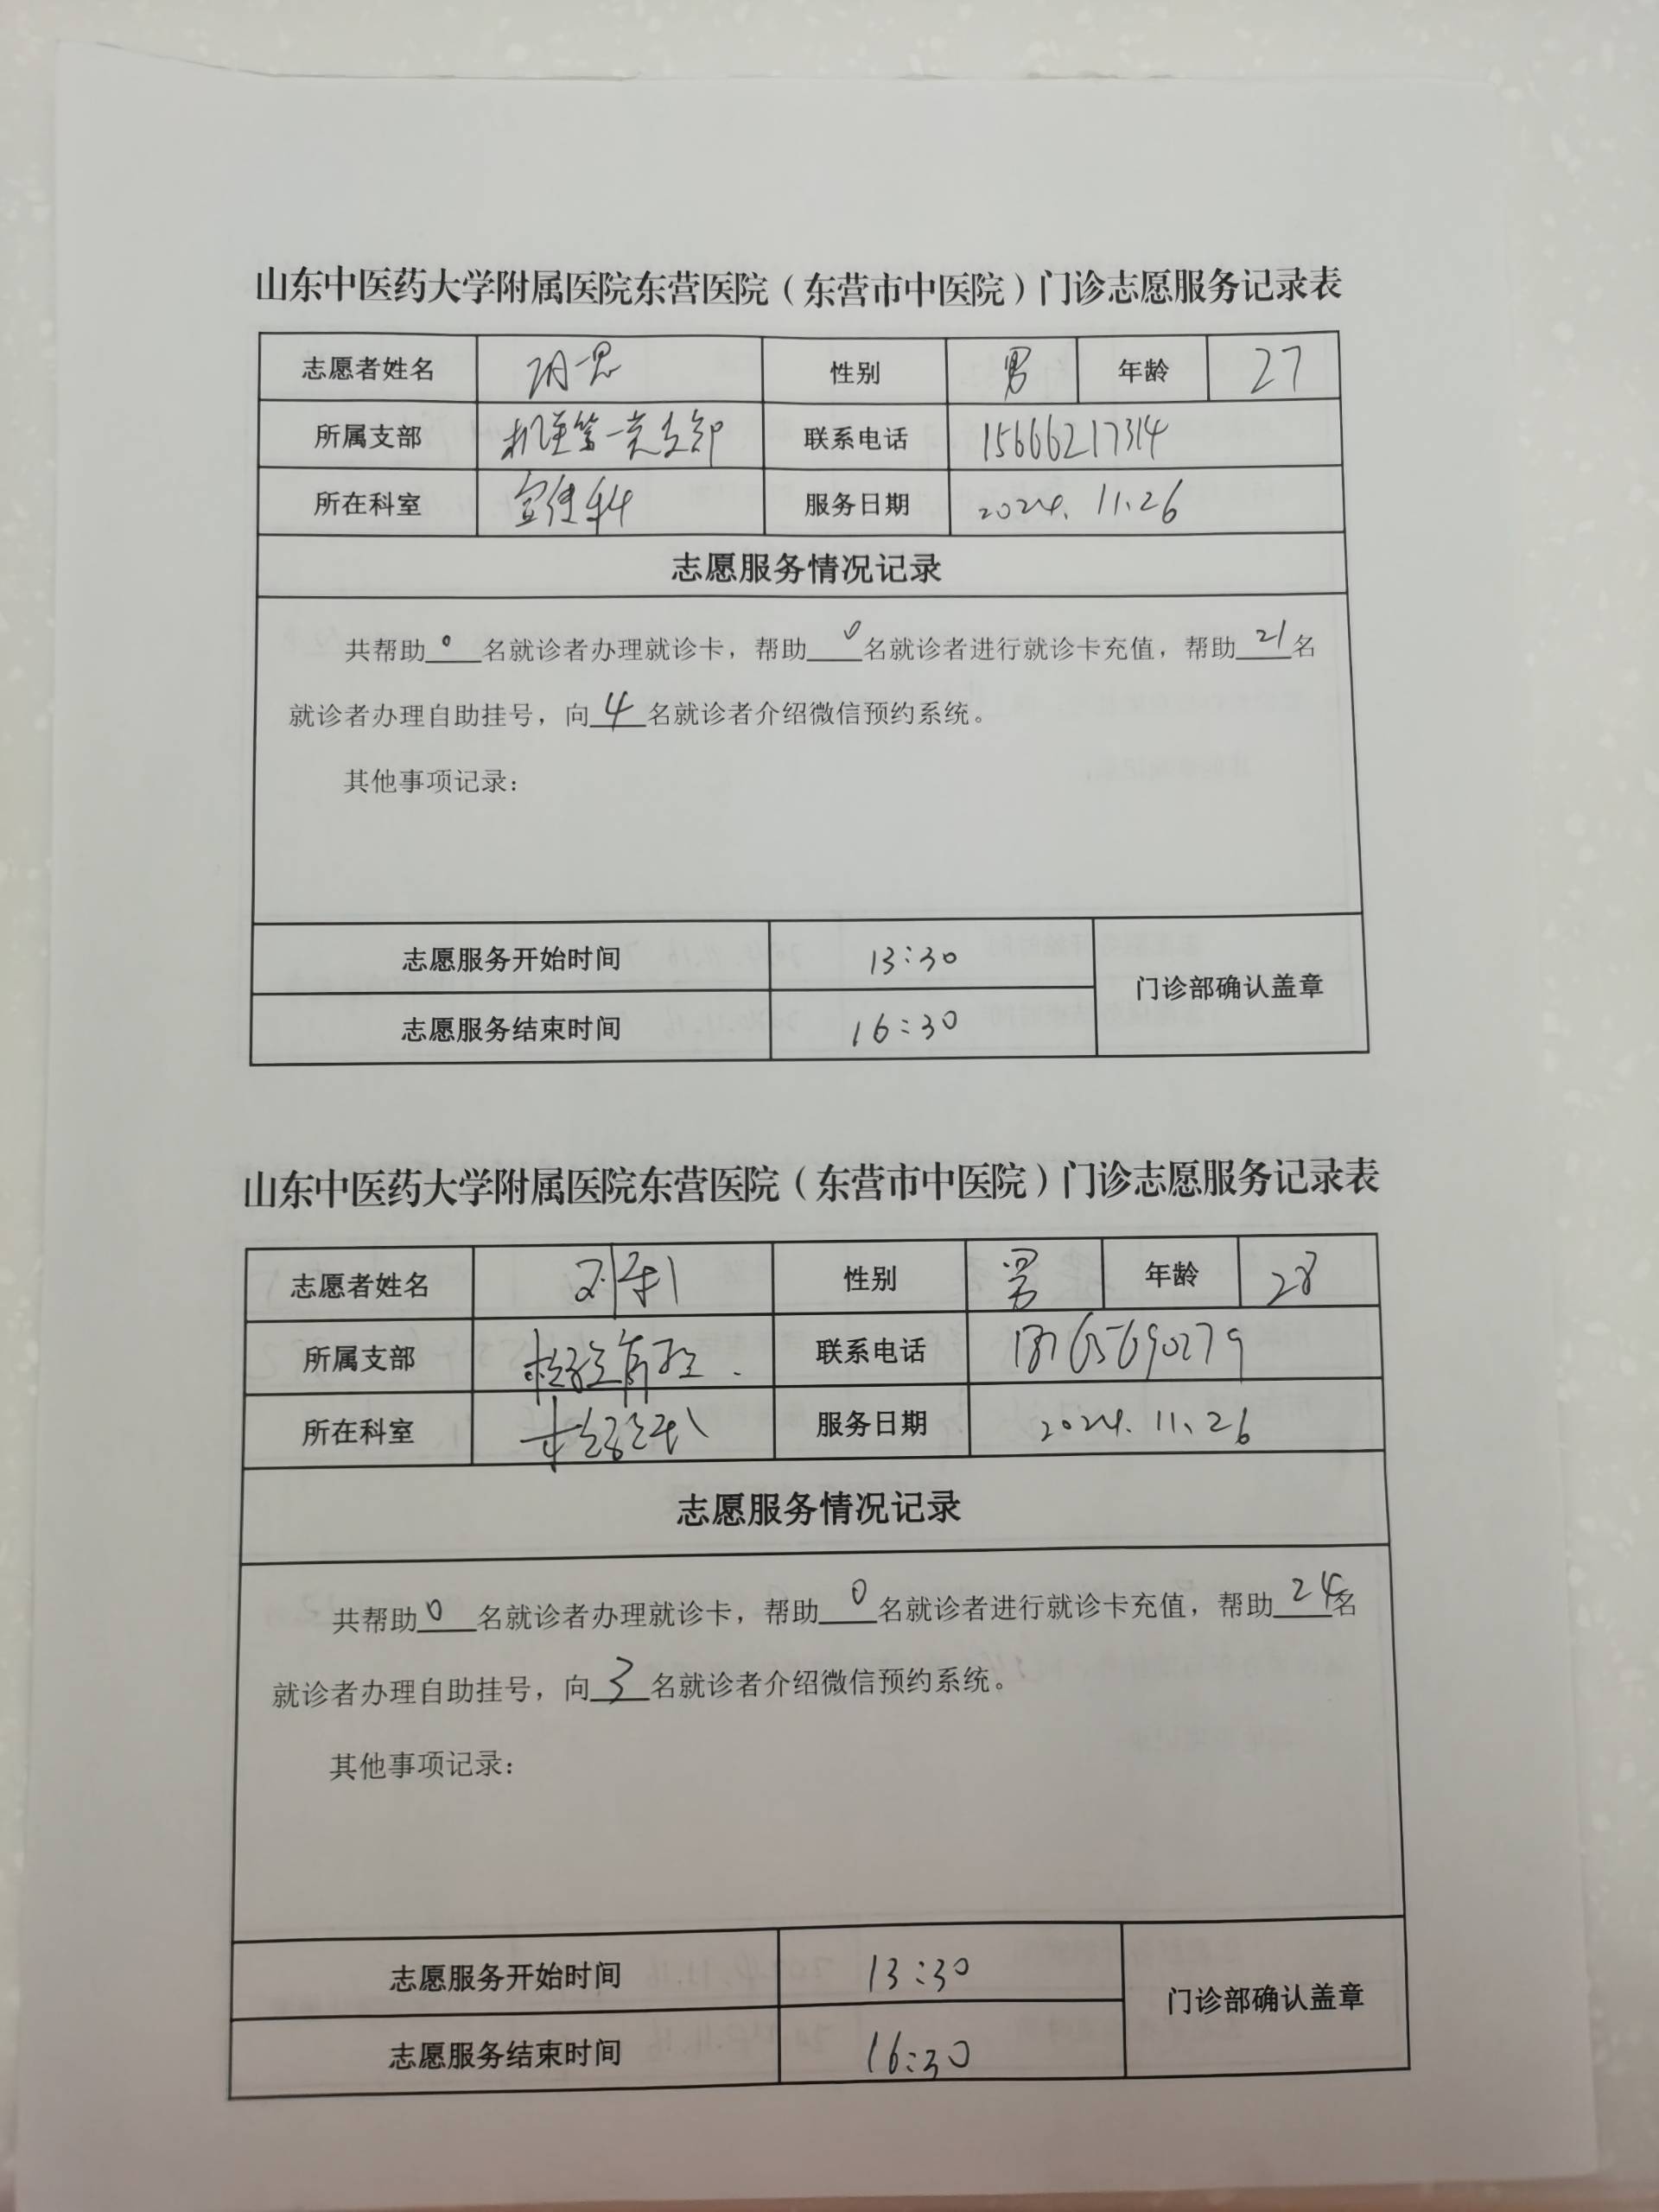 山东中医药大学附属医院东营医院（东营市中医院）门诊志愿服务记录表
志愿者姓名 性别 男 年龄 27
所属支部 机关第一党支部 联系电话 15666217314
所在科室 宣传科 服务日期 2024.11.26
志愿服务情况记录
共帮助0名就诊者办理就诊卡，帮助0名就诊者进行就诊卡充值，帮助21名
就诊者办理自助挂号，向4名就诊者介绍微信预约系统。
其他事项记录：
志愿服务开始时间 13:30
门诊部确认盖章
志愿服务结束时间 16:30
山东中医药大学附属医院东营医院（东营市中医院）门诊志愿服务记录表
志愿者姓名 性别 男 年龄 28
所属支部 联系电话
所在科室 检验科 服务日期 2024.11.26
志愿服务情况记录
共帮助0名就诊者办理就诊卡，帮助0名就诊者进行就诊卡充值，帮助24名
就诊者办理自助挂号，向3名就诊者介绍微信预约系统。
其他事项记录：
志愿服务开始时间 13:30
门诊部确认盖章
志愿服务结束时间 16:30